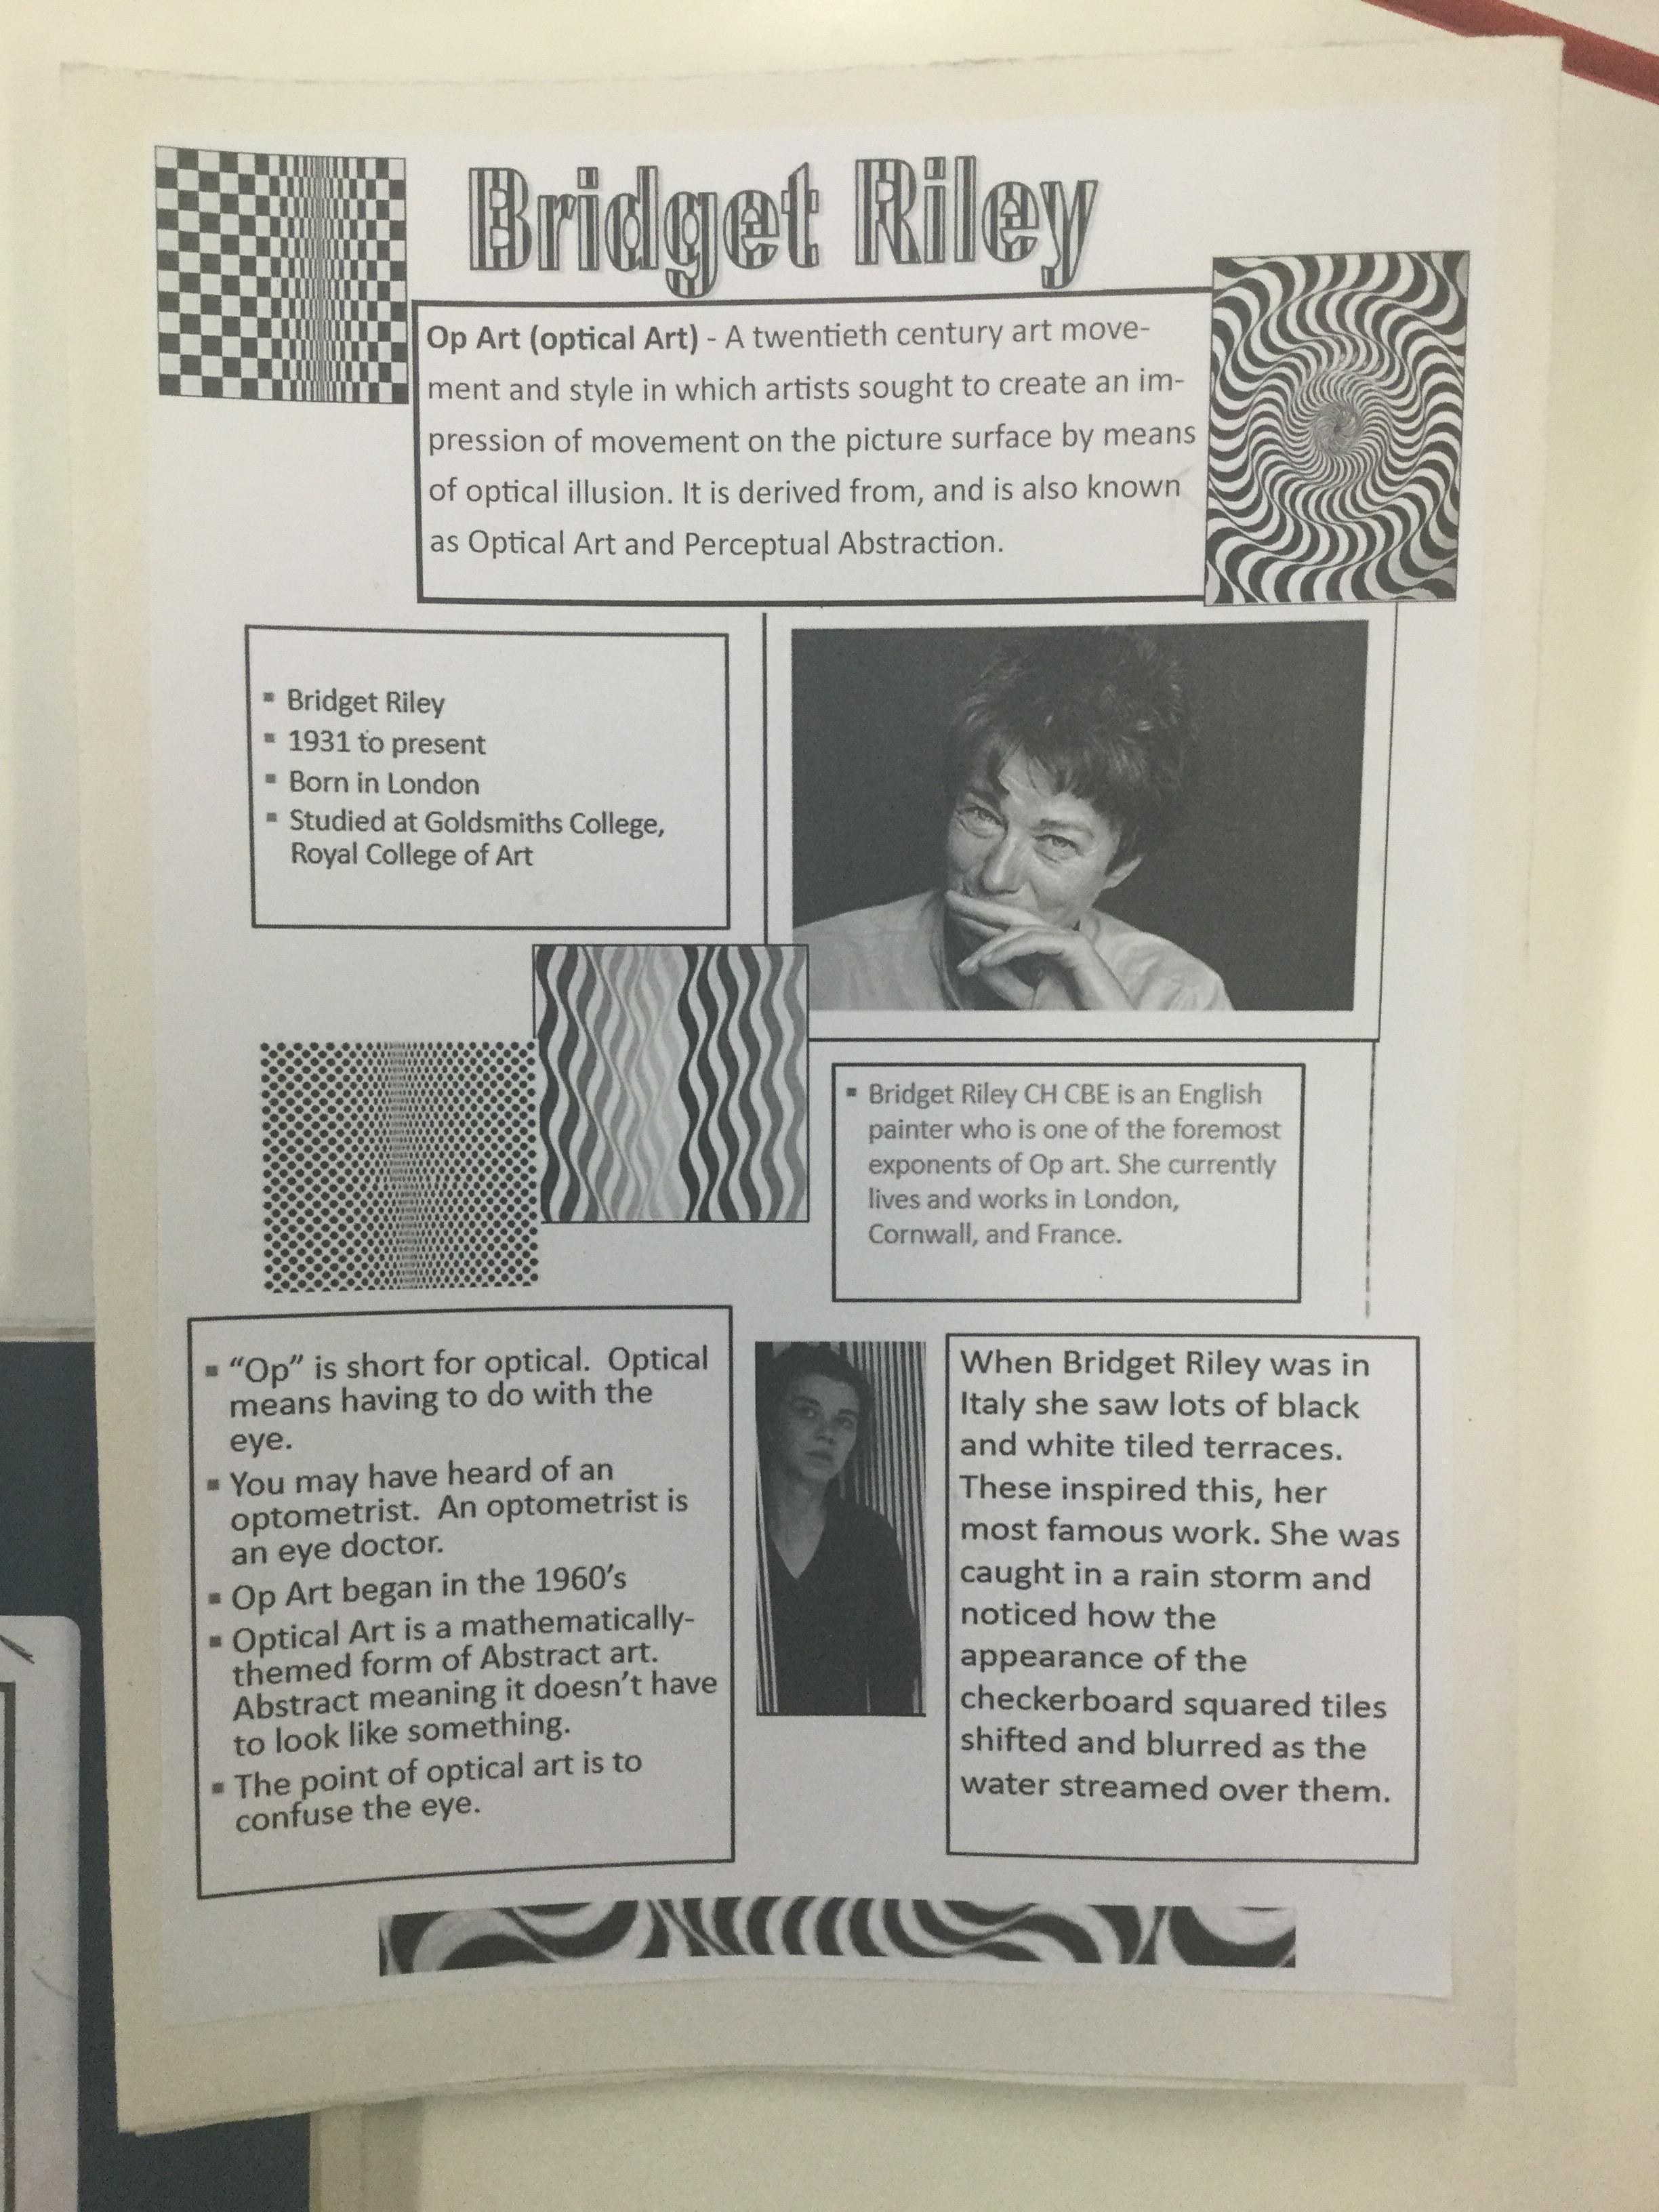 Bridget Riley
Op Art (optical Art) - A twentieth century art move-
ment and style in which artists sought to create an im-
pression of movement on the picture surface by means
of optical illusion. It is derived from, and is also known
as Optical Art and Perceptual Abstraction.
▪ Bridget Riley
▪ 1931 to present
▪ Born in London
▪ Studied at Goldsmiths College,
Royal College of Art
▪ Bridget Riley CH CBE is an English
painter who is one of the foremost
exponents of Op art. She currently
lives and works in London,
Cornwall, and France.
▪ “Op” is short for optical. Optical
means having to do with the
eye.
▪ You may have heard of an
optometrist. An optometrist is
an eye doctor.
▪ Op Art began in the 1960’s
▪ Optical Art is a mathematically-
themed form of Abstract art.
Abstract meaning it doesn’t have
to look like something.
▪ The point of optical art is to
confuse the eye.
When Bridget Riley was in
Italy she saw lots of black
and white tiled terraces.
These inspired this, her
most famous work. She was
caught in a rain storm and
noticed how the
appearance of the
checkerboard squared tiles
shifted and blurred as the
water streamed over them.